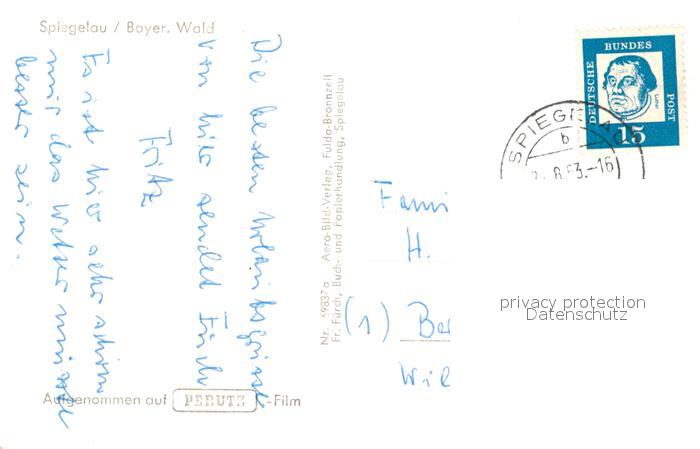 Spiegelau / Bayer. Wald
Die besten Urlaubsgrüsse
von hier sendet Euch
Fritz
Es ist hier sehr schön
nur das Wetter müsste
besser sein.
Aufgenommen auf PERUTZ -Film
Nr. 59837a Aero-Bild-Verlag, Fulda-Bronnzell
Fr. Fürch, Buch- und Papierhandlung, Spiegelau
DEUTSCHE
BUNDES
POST
Luther
15
SPIEGELA
b
.8.63.-16
Fami
H.
(1) Ber
Wil
privacy protection
Datenschutz